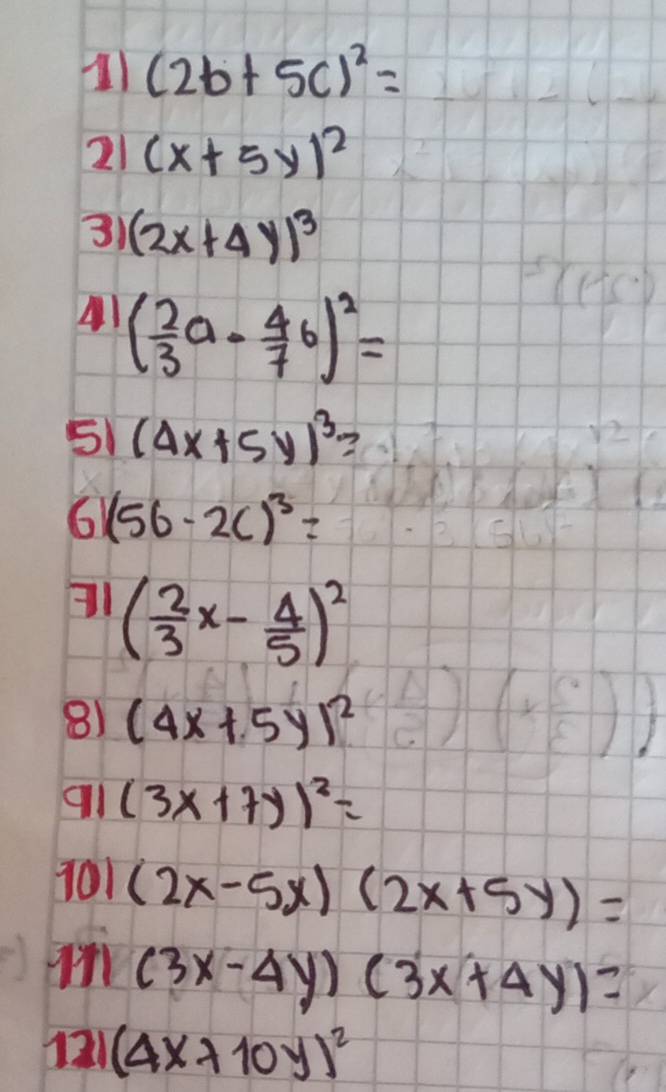 1) (2b + 5c)² =
2) (x + 5y)²
3) (2x + 4y)³
4) (2/3 a - 4/7 b)² =
5) (4x + 5y)³ =
6) (5b - 2c)³ =
7) (2/3 x - 4/5)²
8) (4x + 5y)²
9) (3x + 7y)² =
10) (2x - 5x) (2x + 5y) =
11) (3x - 4y) (3x + 4y) =
12) (4x + 10y)²